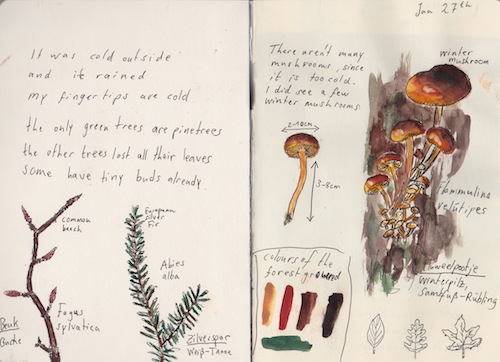 It was cold outside
and it rained
my fingertips are cold
the only green trees are pinetrees
the other trees lost all their leaves
some have tiny buds already.
common
beech
Fagus
sylvatica
Beuk
Buche
European
silver
Fir
Abies
alba
Zilverspar
Weiß-Tanne
Jan 27th
There aren't many
mushrooms, since
it is too cold.
I did see a few
winter mushrooms
winter
mushroom
2-10cm
3-8cm
Flammulina
velutipes
Fluweelpootje
Winterpilz,
Samtfuß-Rübling
colours of the
forest ground